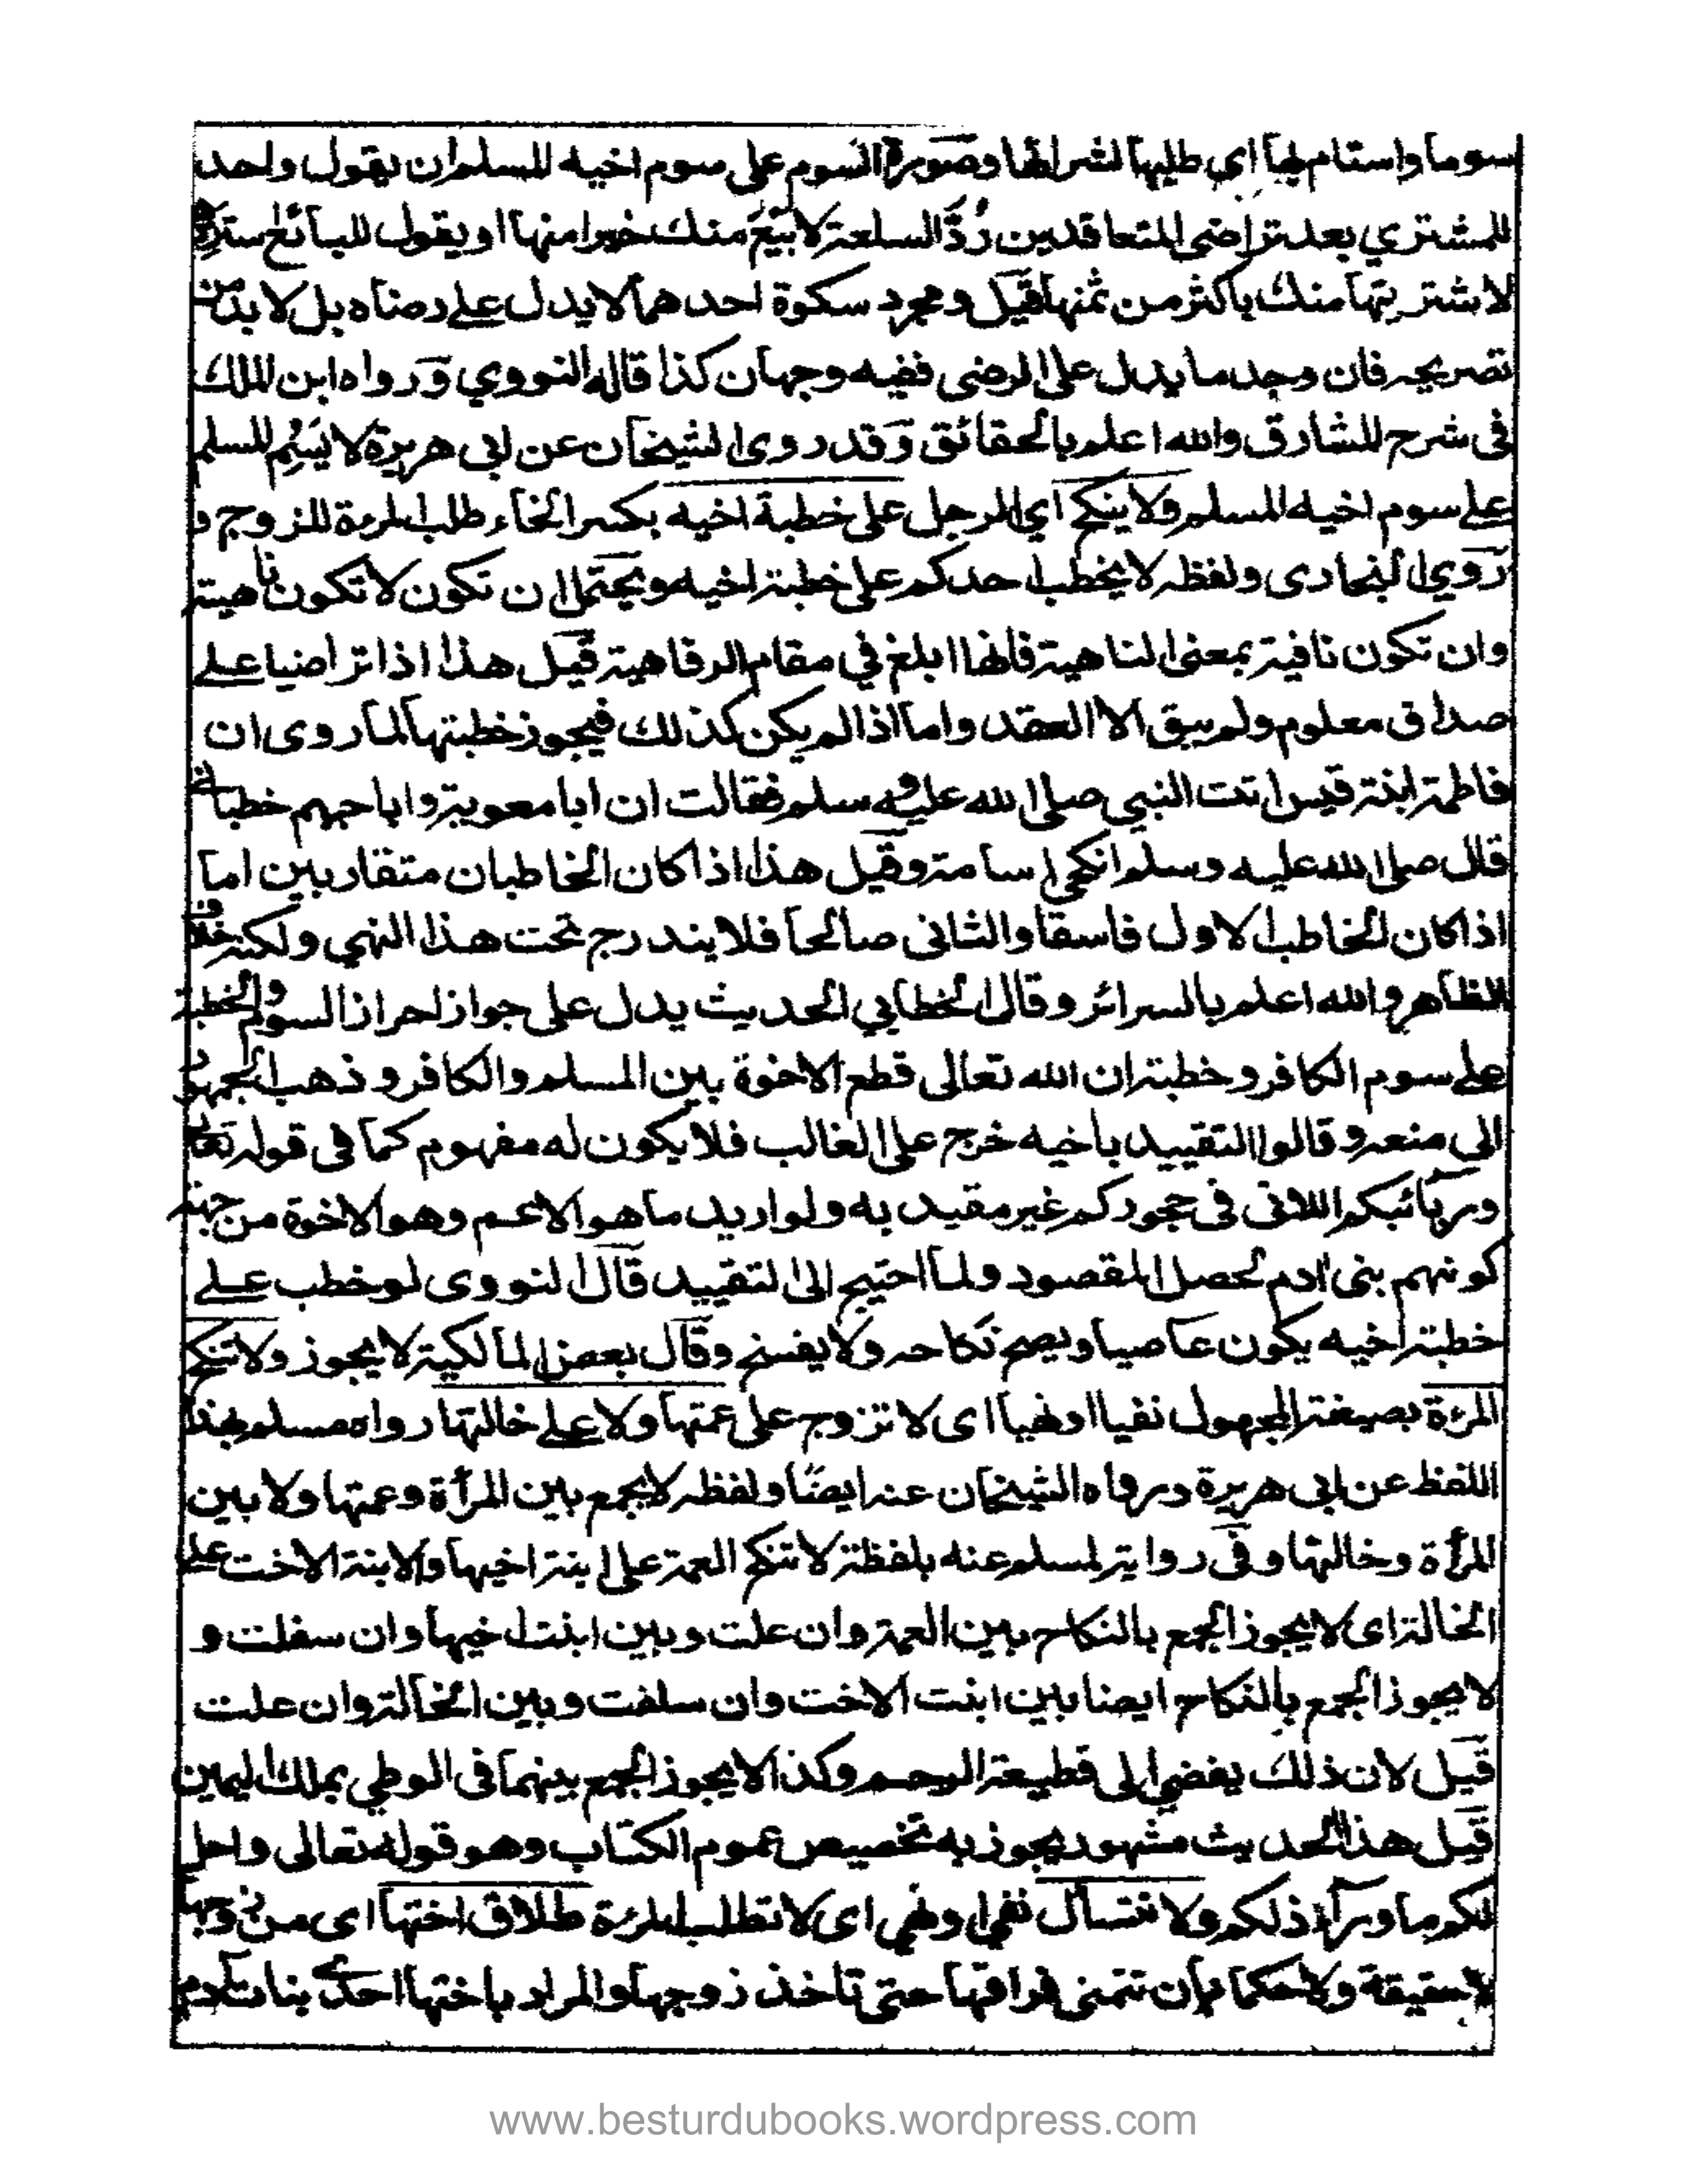 سوما واستام بها اى طلبها لشرائها وصورة السوم على سوم اخيه المسلم ان يقول واحد
للمشتري بعد تراضى المتعاقدين رُدَّ السلعة لابَيْعَ منك خيرا منها او يقول للبائع
لاشتريتها منك باكثر من ثمنها قيل ومجرد سكوة احدهما لا يدل على رضاه بل لا بد من
تصريحه فان وجد ما يدل على الرضى ففيه وجهان كذا قاله النووي ورواه ابن الملك
فى شرح المشارق والله اعلم بالحقائق وقد روى الشيخان عن ابى هريرة لا يَسُمِ المسلم
على سوم اخيه المسلم ولا ينكح اي الرجل على خطبة اخيه بكسر الخاء طلب المرءة للزوج و
روي البخارى ولفظه لا يخطب احدكم على خطبة اخيه ويحتمل ان تكون لا تكون ناهية
وان تكون نافية بمعنى الناهية فانها ابلغ في مقام الرفاهية قيل هذا اذا تراضيا على
صداق معلوم ولم يبق الا العقد واما اذا لم يكن كذلك فيجوز خطبتها لما روى ان
فاطمة ابنة قيس اتت النبي صلى الله عليه وسلم فقالت ان ابا معوية وابا جهم خطبانى
قال صلى الله عليه وسلم انكحى اسامة وقيل هذا اذا كان الخاطبان متقاربين اما
اذا كان الخاطب الاول فاسقا والثانى صالحا فلا يندرج تحت هذا النهي ولكنه خلاف
الظاهر والله اعلم بالسرائر وقال الخطابي الحديث يدل على جواز احراز السوم والخطبة
على سوم الكافر وخطبته ان الله تعالى قطع الاخوة بين المسلم والكافر وذهب الجمهور
الى منعه وقالوا التقييد باخيه خرج على الغالب فلا يكون له مفهوم كما فى قوله تعالى
وربائبكم اللاتى فى حجوركم غير مقيد به ولو اريد ما هو الاعم وهو الاخوة من جهة
كونهم بنى ادم لحصل المقصود ولما احتيج الى التقييد قال النووى لو خطب على
خطبة اخيه يكون عاصيا ويصح نكاحه ولا يفسخ وقال بعض المالكية لا يجوز ولا تنكح
المرءة بصيغة المجهول نفيا او نهيا اى لا تزوج على عمتها ولا على خالتها رواه مسلم بهذا
اللفظ عن ابى هريرة ورواه الشيخان عنه ايضًا ولفظه لا يجمع بين المرأة وعمتها ولا بين
المرأة وخالتها وفى رواية لمسلم عنه بلفظة لا تنكح العمة على ابنة اخيها والابنة الاخت على
الخالة اى لا يجوز الجمع بالنكاح بين العمة وان علت وبين ابنت اخيها وان سفلت و
لا يجوز الجمع بالنكاح ايضا بين ابنت الاخت وان سلفت وبين الخالة وان علت
قيل لان ذلك يفضى الى قطيعة الرحم وكذا لا يجوز الجمع بينهما فى الوطي بملك اليمين
قيل هذا الحديث مشهور يجوز به تخصيص عموم الكتاب وهو قوله تعالى واحل
لكم ما وراء ذلكم ولا تسأل نفي او نهي اى لا تطلب المرءة طلاق اختها اى من زوجها
لا حقيقة ولا حكما بان تتمنى فراقها حتى تاخذ زوجها والمراد باختها احدى بنات ادم
www.besturdubooks.wordpress.com